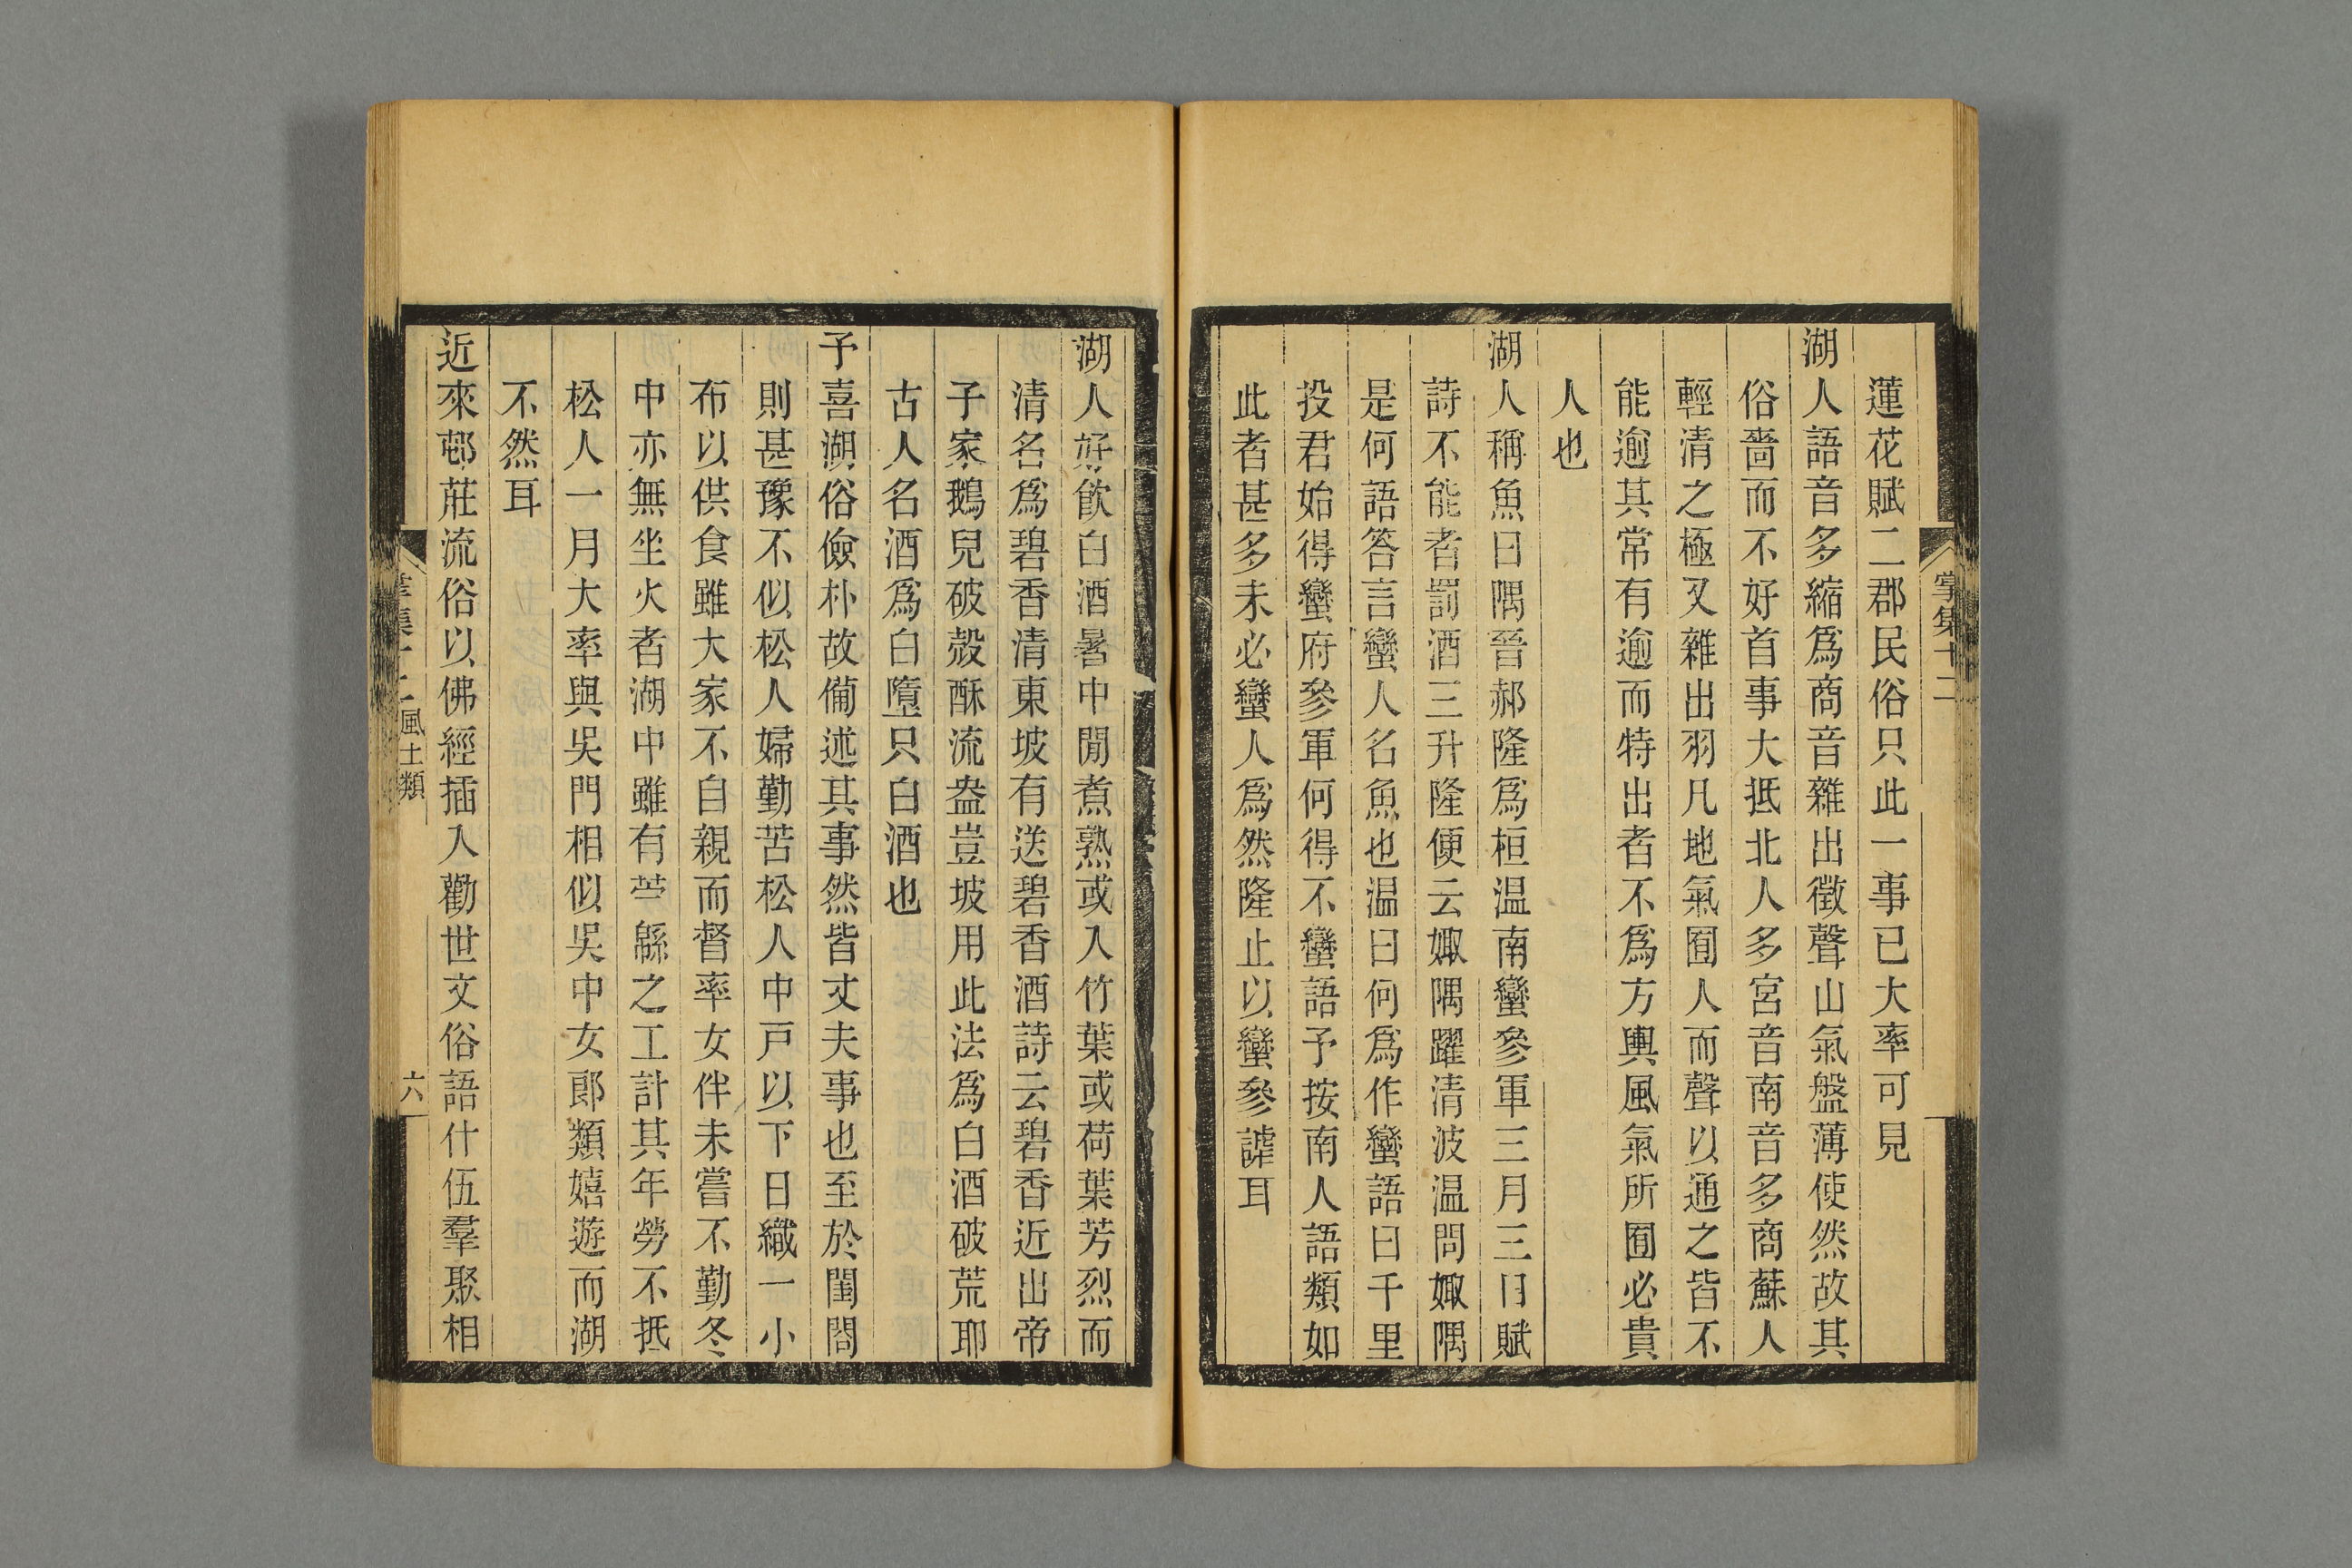 蓮花賦二郡民俗只此一事已大率可見
湖人語音多縮爲商音雜出徵聲山氣盤薄使然故其
俗嗇而不好首事大抵北人多宮音南音多商蘇人
輕清之極又雜出羽凡地氣囿人而聲以通之皆不
能逾其常有逾而特出者不爲方輿風氣所囿必貴
人也
湖人稱魚曰隅晉郝隆爲桓温南蠻參軍三月三日賦
詩不能者罰酒三升隆便云娵隅躍清波温問娵隅
是何語答言蠻人名魚也温曰何爲作蠻語曰千里
投君始得蠻府參軍何得不蠻語予按南人語類如
此者甚多未必蠻人爲然隆止以蠻參謔耳
掌集十二
湖人好飲白酒暑中閒煮熟或入竹葉或荷葉芳烈而
清名爲碧香清東坡有送碧香酒詩云碧香近出帝
子家鵝兒破殼酥流盎豈坡用此法爲白酒破荒耶
古人名酒爲白墮只白酒也
予喜湖俗儉朴故備述其事然皆丈夫事也至於閨閤
則甚豫不似松人婦勤苦松人中戸以下日織一小
布以供食雖大家不自親而督率女伴未嘗不勤冬
中亦無坐火者湖中雖有苧緜之工計其年勞不抵
松人一月大率與吳門相似吳中女郎類嬉遊而湖
不然耳
近來邨莊流俗以佛經插入勸世文俗語什伍羣聚相
集十二 風土類 六